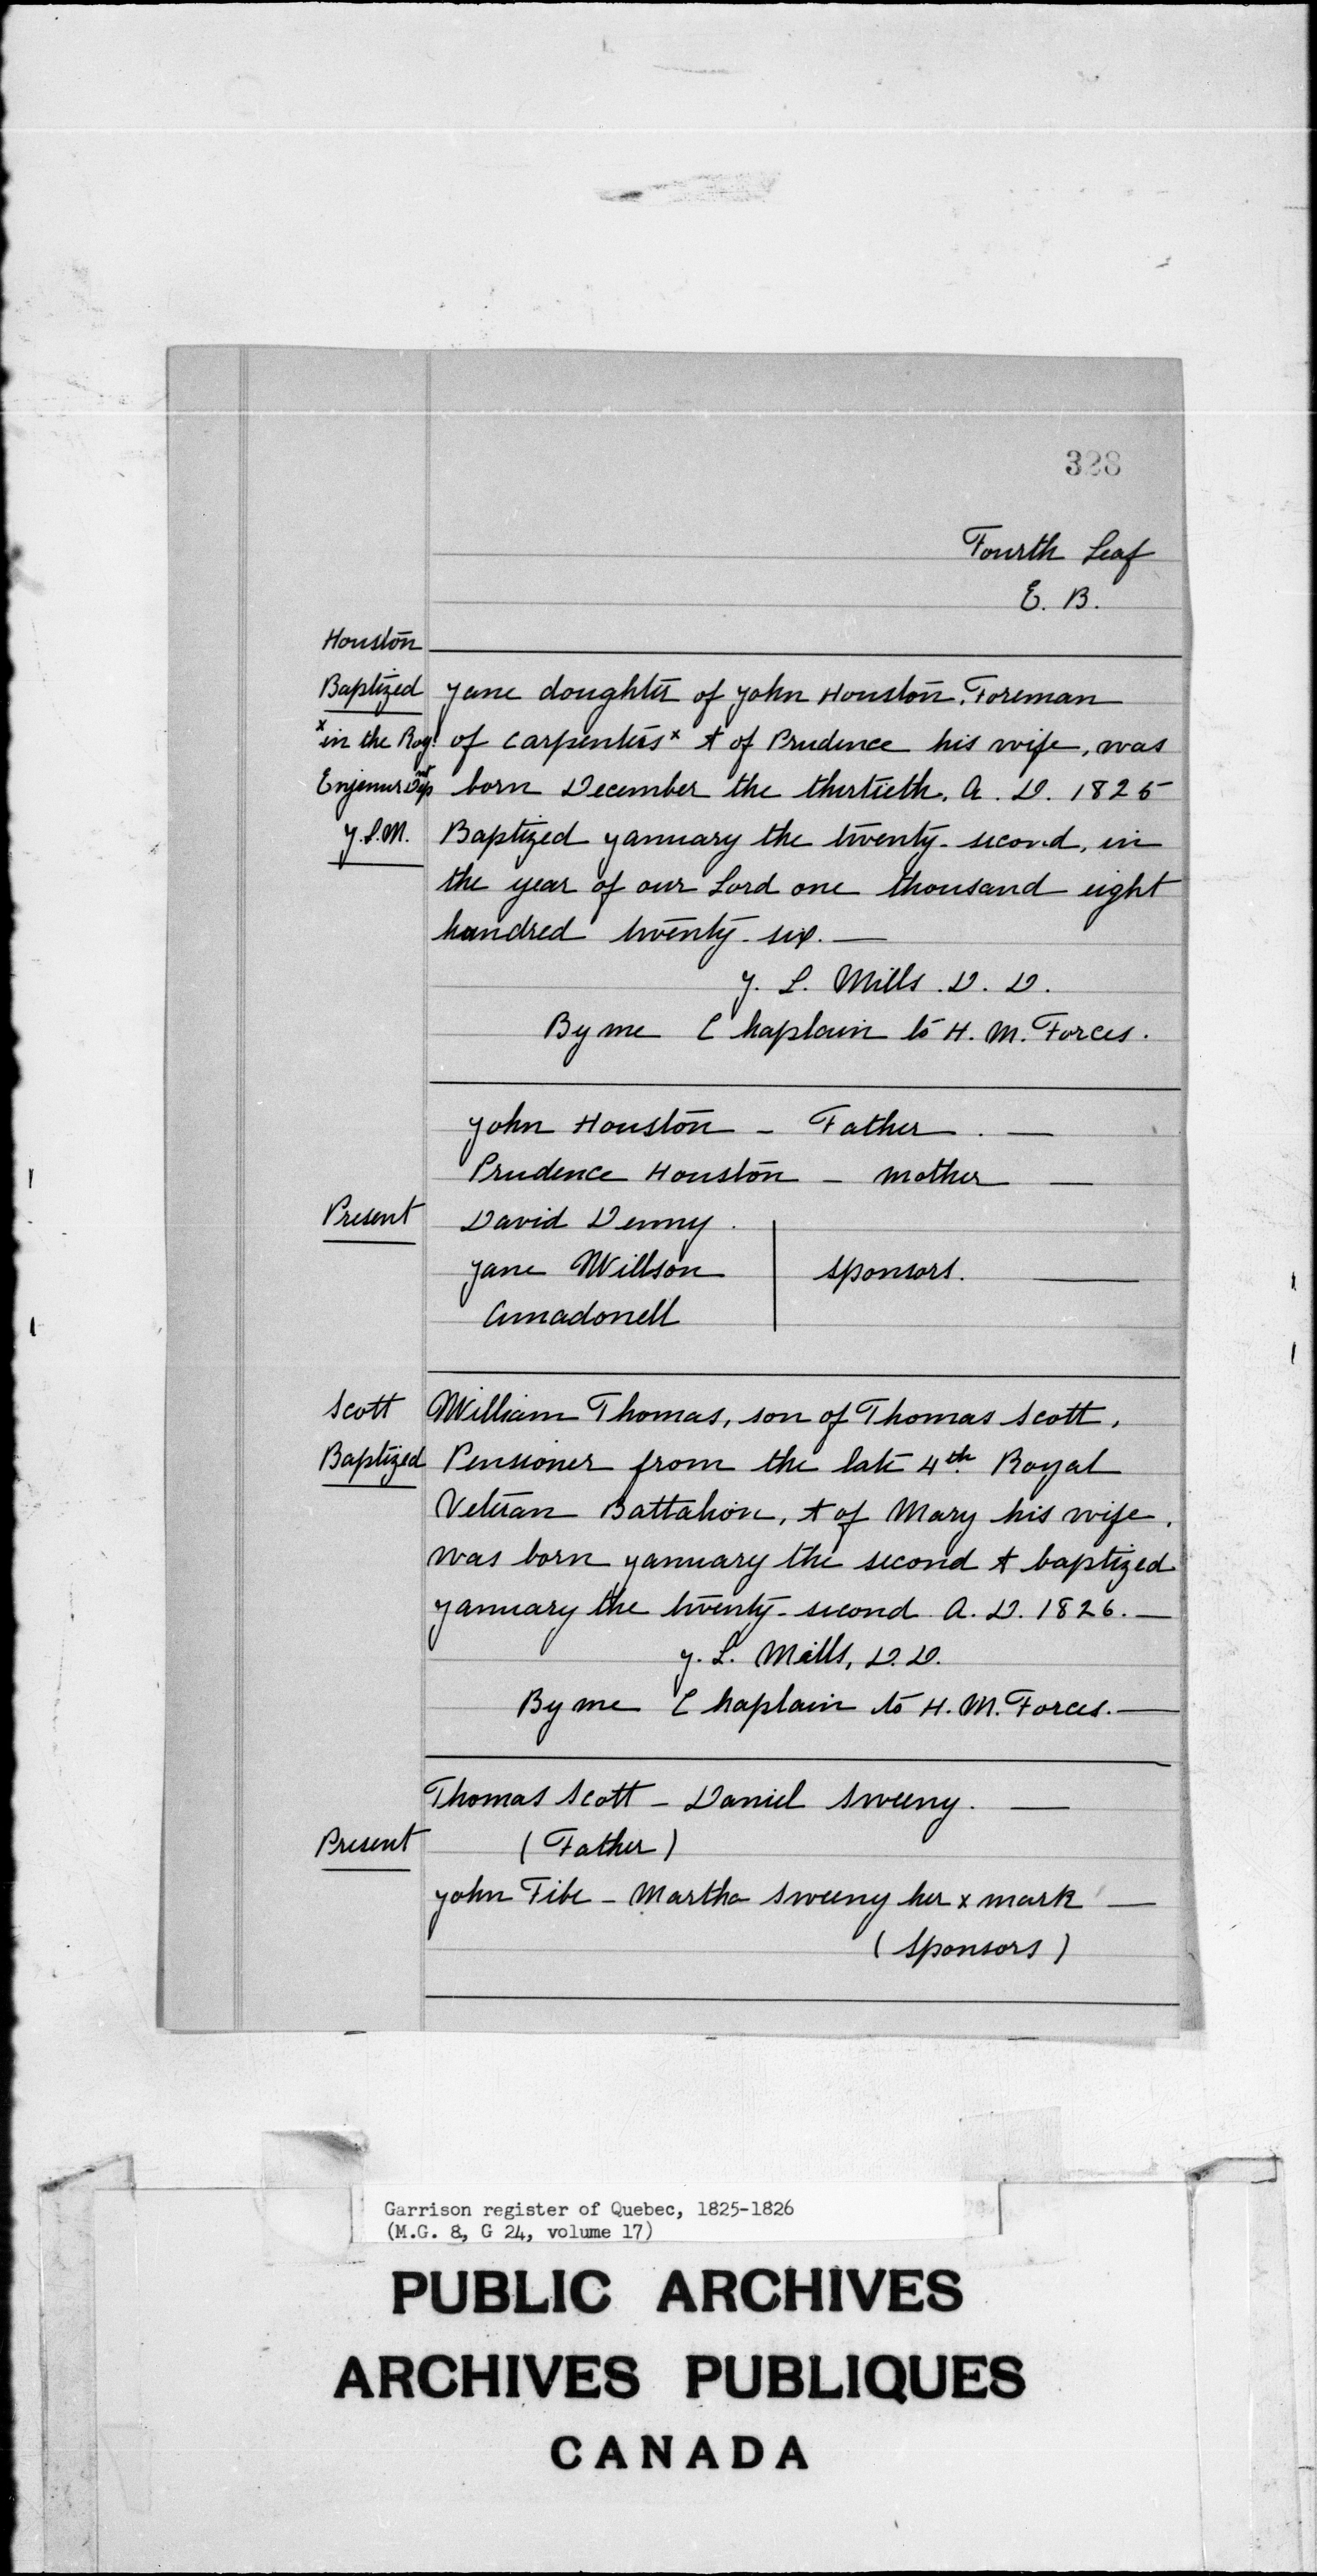 328
Fourth Leaf
E. B.
Houston
Baptized
x in the Roy!
Enjenurs Dep nt
J. L. M.
Jane doughter of John Houston, Foreman
of carpenters x & of Prudence his wife, was
born December the thirtieth. A. D. 1825
Baptized January the twenty-second, in
the year of our Lord one thousand eight
hundred twenty-six. —
J. L. Mills. D. D.
By me Chaplain to H. M. Forces.
John Houston - Father. —
Prudence Houston - mother —
Present
David Denny.
Jane Willson
sponsors. —
Amadonell
Scott
Baptized
William Thomas, son of Thomas Scott,
Pensioner from the late 4th. Royal
Veteran Battalion, & of Mary his wife.
was born January the second & baptized
January the twenty-second A. D. 1826. —
J. L. Mills, D. D.
By me Chaplain to H. M. Forces. —
Thomas Scott - Daniel Sweeny. —
Present
(Father)
John Fibe - Martha Sweeny her x mark —
(Sponsors)
Garrison register of Quebec, 1825-1826
(M.G. 8, G 24, volume 17)
PUBLIC ARCHIVES
ARCHIVES PUBLIQUES
CANADA